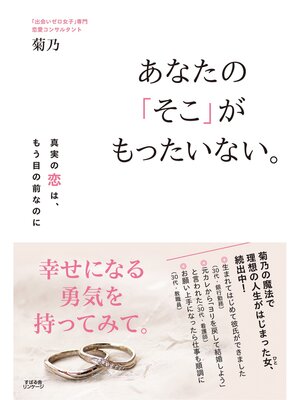 「出会いゼロ女子」専門
恋愛コンサルタント
菊乃
あなたの
「そこ」が
もったいない。
真実の恋は、
もう目の前なのに
菊乃の魔法で
理想の人生がはじまった女、
ひと
続出中!
生まれてはじめて彼氏ができました
(30代・銀行勤務)
元カレから「ヨリを戻して結婚しよう」
と言われた(30代・看護師)
お願い上手になったら仕事も順調に
(30代・教職員)
幸せになる
勇気を
持ってみて。
すばる舎
リンケージ